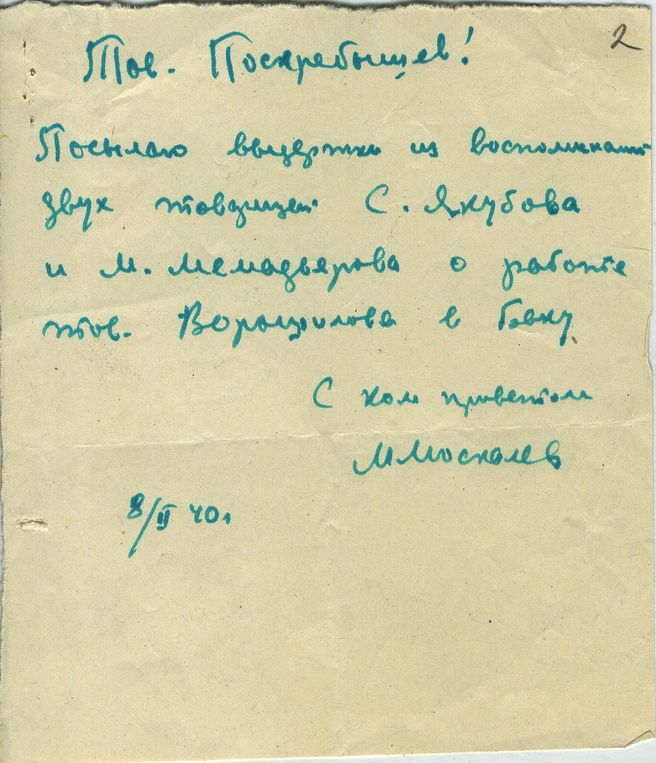 2
Тов. Поскребышев!
Посылаю выдержки из воспоминаний
двух товарищей С. Якубова
и М. Мемадьярова о работе
тов. Ворошилова в Баку
С ком приветом
ММоскалев
8/II 40г